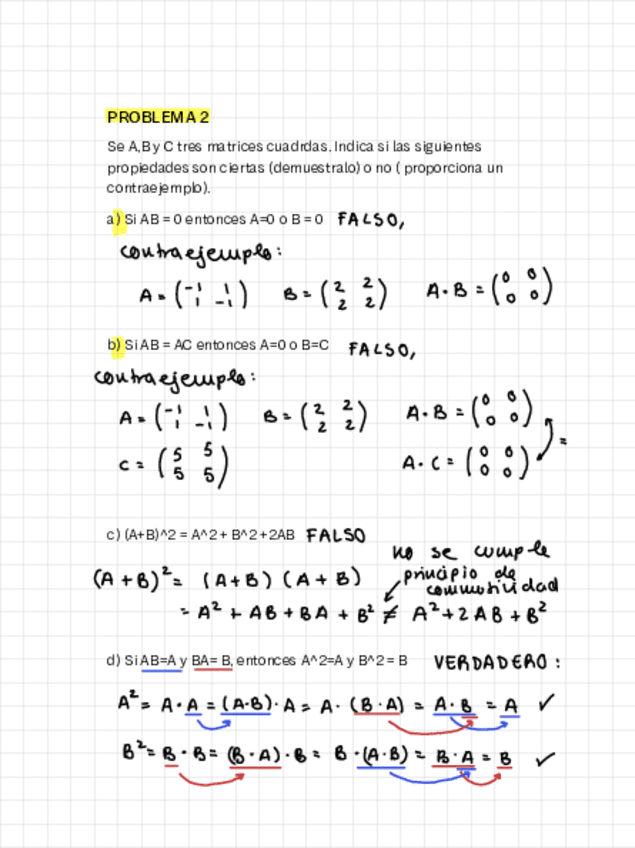 PROBLEMA 2
Se A,B y C tres matrices cuadrdas. Indica si las siguientes
propiedades son ciertas (demuestralo) o no ( proporciona un
contraejemplo).
a) Si AB = 0 entonces A=0 o B = 0 FALSO,
contraejemplo:
A = (-1 1 / 1 -1) B = (2 2 / 2 2) A·B = (0 0 / 0 0)
b) Si AB = AC entonces A=0 o B=C FALSO,
contraejemplo:
A = (-1 1 / 1 -1) B = (2 2 / 2 2) A·B = (0 0 / 0 0)
C = (5 5 / 5 5) A·C = (0 0 / 0 0) =
c) (A+B)^2 = A^2 + B^2 +2AB FALSO
no se cumple
principio de
conmutividad
(A+B)² = (A+B) (A+B)
= A² + AB + BA + B² ≠ A² + 2AB + B²
d) Si AB=A y BA= B, entonces A^2=A y B^2 = B VERDADERO:
A² = A·A = (A·B)·A = A·(B·A) = A·B = A ✓
B² = B·B = (B·A)·B = B·(A·B) = B·A = B ✓